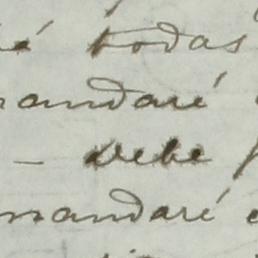 é todas
mandaré
- debe
mandaré